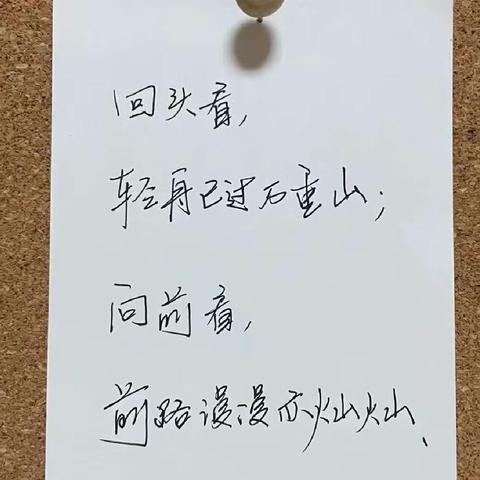 回头看，
轻舟已过万重山；
向前看，
前路漫漫亦灿灿、